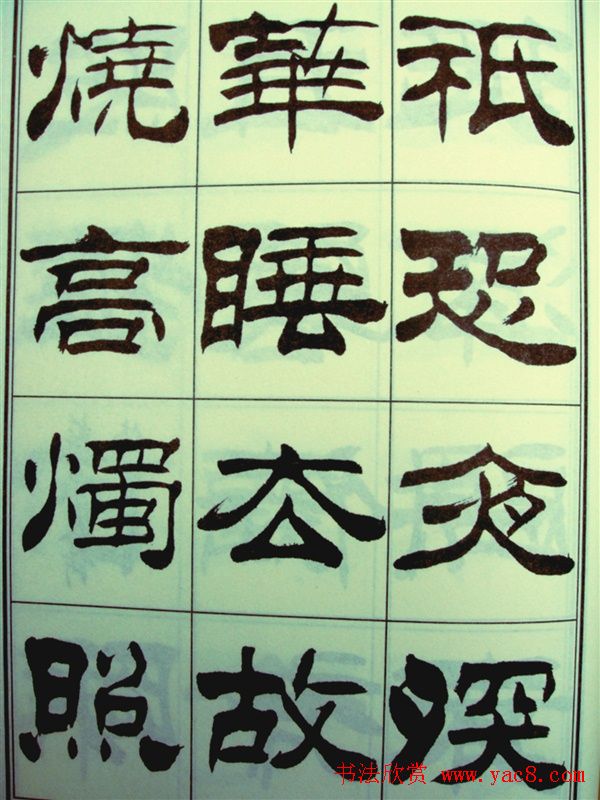 祇恐夜深
華睡去故
燒高燭照
书法欣赏 www.yac8.com